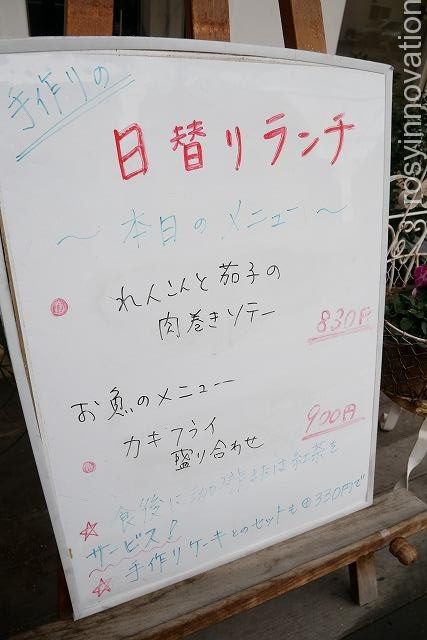 手作りの
日替りランチ
～本日のメニュー～
れんこんと茄子の
肉巻きソテー
830円
お魚のメニュー
カキフライ
盛り合わせ
900円
☆ 食後に珈琲または紅茶を
サービス!
☆ 手作りケーキとのセットも⊕330円で
©rosyinnovation